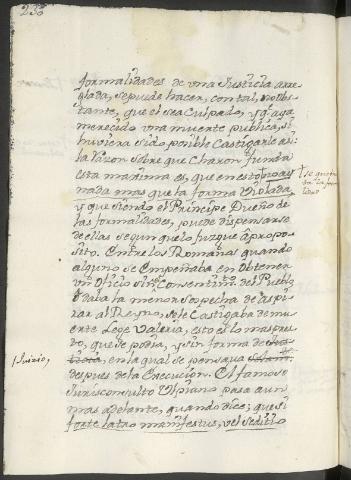 238
formalidades de una Justicia arre-
glada, se puede hacer, con tal, no obs-
tante, que el sea Culpado, y q.e aya
merecido una muerte publica, si
huviera sido posible Castigarle assi:
la razon sobre que Charon funda
esta maxima es, que en esto no ay
nada mas que la forma Violada,
y que siendo el Principe Dueño de
las formalidades, puede dispensarse
de ellas segun que lo juzgue à propo-
sito. Entre los Romanos quando
alguno se Empeñaba en Obtener
un Oficio sin Consentim.to del Pueblo
ò daba la menor sospecha de aspi-
rar al Reyno, se le Castigaba de mu-
erte Lege Valeria, esto es lo mas pres-
to, que se podia, y sin forma de
Juicio,
en la qual se pensava
despues de la Execucion. El famoso
Jurisconsulto Ulpiano pasa aun
mas adelante, quando dice; que si
forte latro manifestus, vel seditio